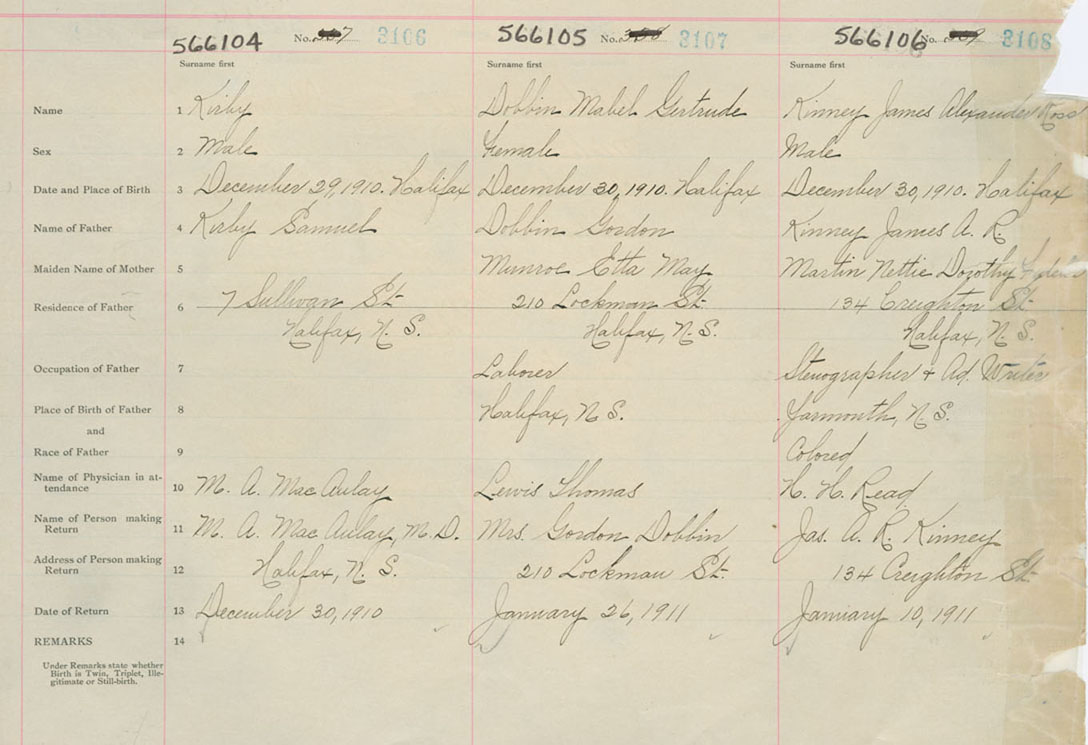 566104 No. 3106 566105 No. 3107 566106 No. 3108
Surname first Surname first Surname first
Name 1 Kirby Dobbin Mabel Gertrude Kinney James Alexander Ross
Sex 2 Male Female Male
Date and Place of Birth 3 December 29, 1910. Halifax December 30, 1910. Halifax December 30, 1910. Halifax
Name of Father 4 Kirby Samuel Dobbin Gordon Kinney James A. R.
Maiden Name of Mother 5 Munroe Etta May Martin Nettie Dorothy
Residence of Father 6 7 Sullivan St. 210 Lockman St. 134 Creighton St.
Halifax, N. S. Halifax, N. S. Halifax, N. S.
Occupation of Father 7 Laborer Stenographer & Ad. Writer
Place of Birth of Father 8 Halifax, N S. Yarmouth, N. S.
and
Race of Father 9 Colored
Name of Physician in at-
tendance 10 M. A. MacAulay Lewis Thomas H. H. Read
Name of Person making
Return 11 M. A. MacAulay, M. D. Mrs. Gordon Dobbin Jas. A. R. Kinney
Address of Person making
Return 12 Halifax, N. S. 210 Lockman St. 134 Creighton St.
Date of Return 13 December 30, 1910 January 26, 1911 January 10, 1911
REMARKS 14
Under Remarks state whether
Birth is Twin, Triplet, Ille-
gitimate or Still-birth.